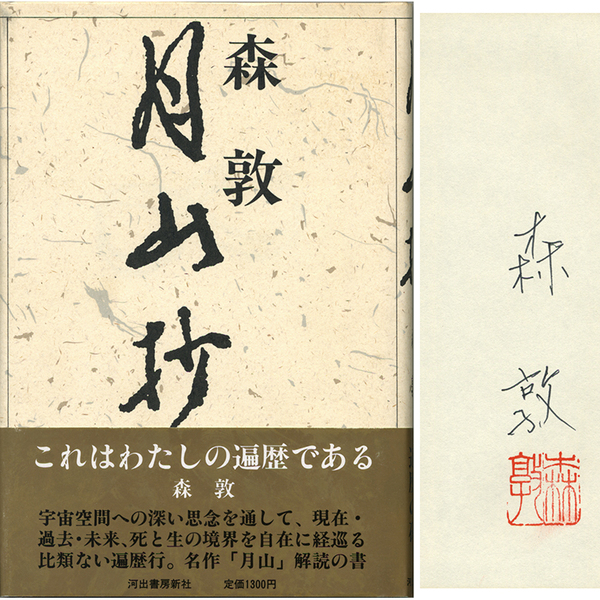 森敦
月山抄
これはわたしの遍歴である
森敦
宇宙空間への深い思念を通して、現在・
過去・未来、死と生の境界を自在に経巡る
比類ない遍歴行。名作「月山」解読の書
河出書房新社 定価1300円
森敦
森敦